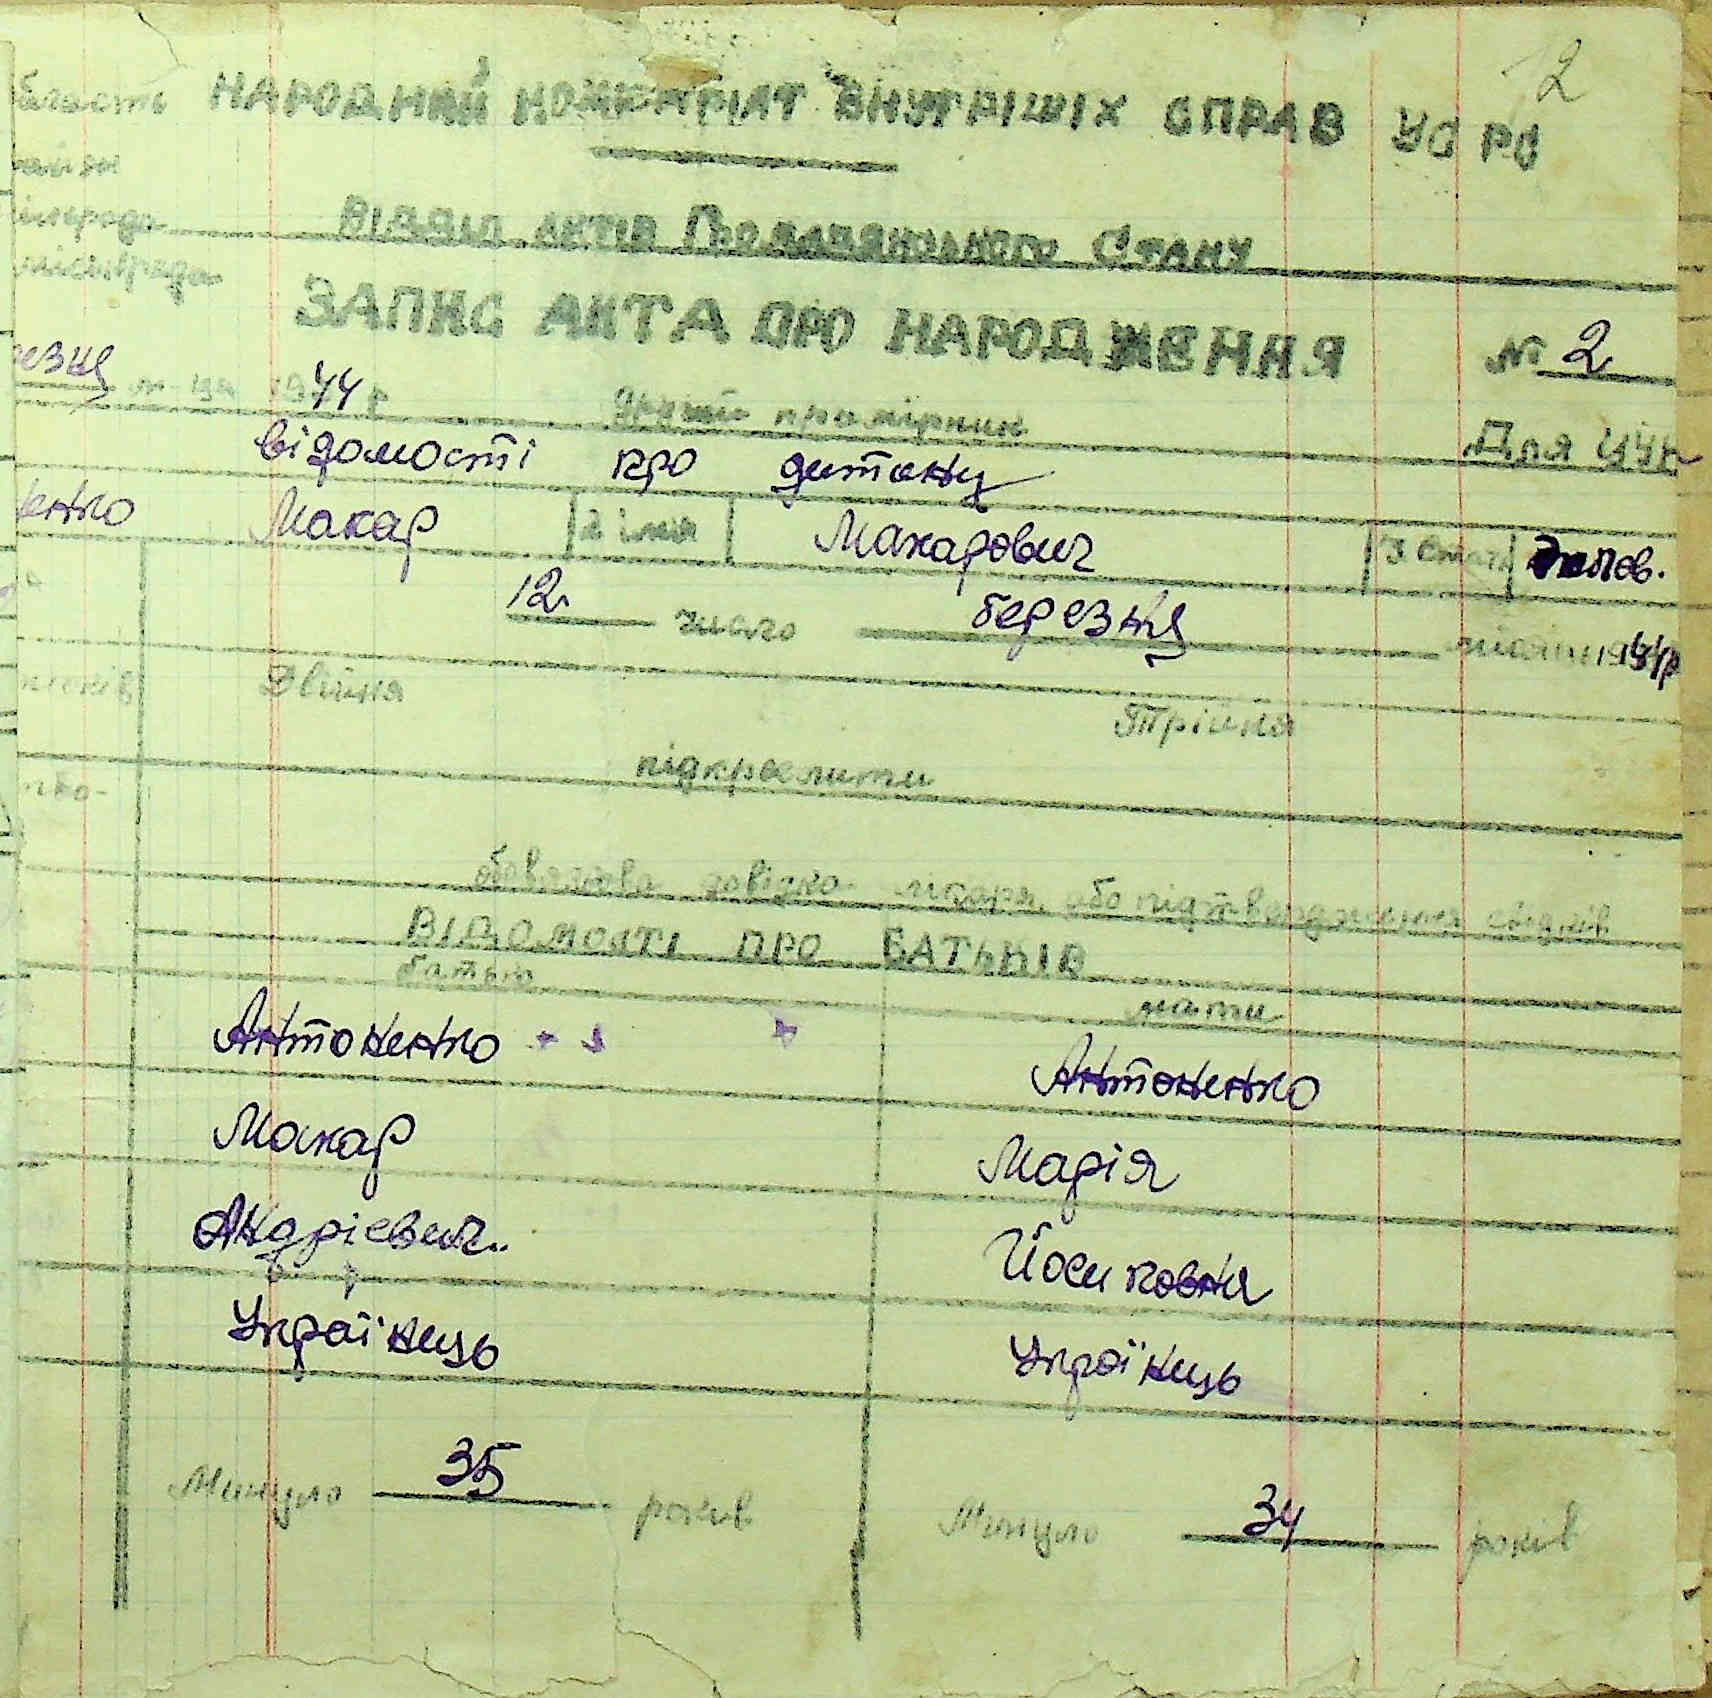 2
НАРОДНИЙ КОМІСАРІАТ ВНУТРІШІХ СПРАВ УСРР
ВІДДІЛ АКТІВ ГРОМАДЯНСЬКОГО СТАНУ
ЗАПИС АКТА ПРО НАРОДЖЕННЯ № 2
1944 р другий примірник Для ЦУК
відомості про дитину
Макар 2 імя Макарович 3 стать чолов.
12 число березня місяця 1944р
Двійня Трійня
підкреслити
обовязкова довідка лікаря або підтвердження свідків
ВІДОМОСТІ ПРО БАТЬКІВ
батько мати
Антоненко Антоненко
Макар Марія
Андрієвич Йосиповна
Українець Українець
Минуло 35 років Минуло 34 років